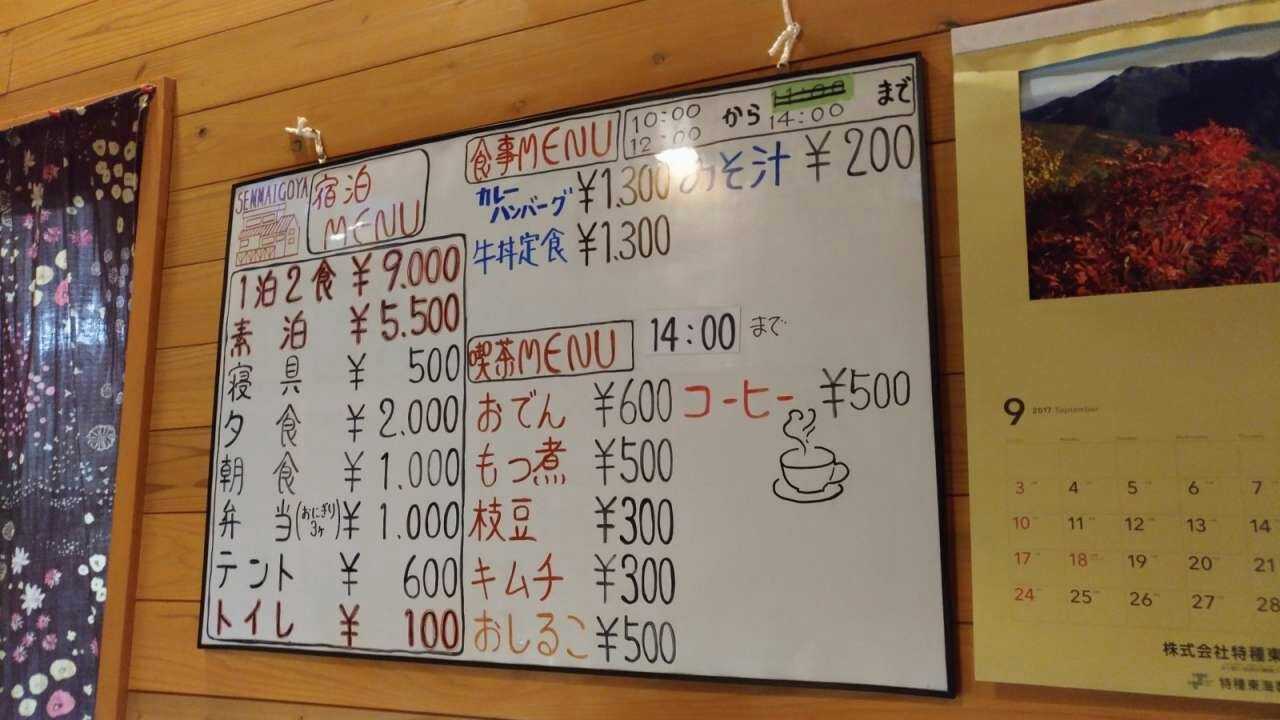 SENMAIGOYA
宿泊
MENU
1泊2食 ¥9.000
素泊 ¥5.500
寝具 ¥500
夕食 ¥2.000
朝食 ¥1.000
弁当(おにぎり3ヶ) ¥1.000
テント ¥600
トイレ ¥100
食事MENU
10:00
12:00
から
14:00
まで
カレー
ハンバーグ ¥1.300
みそ汁 ¥200
牛丼定食 ¥1.300
喫茶MENU 14:00 まで
おでん ¥600
コーヒー ¥500
もつ煮 ¥500
枝豆 ¥300
キムチ ¥300
おしるこ ¥500
9 2017 September
3 4 5 6 7
10 11 12 13 14
17 18 19 20 21
24 25 26 27 28
株式会社特種東
特種東海